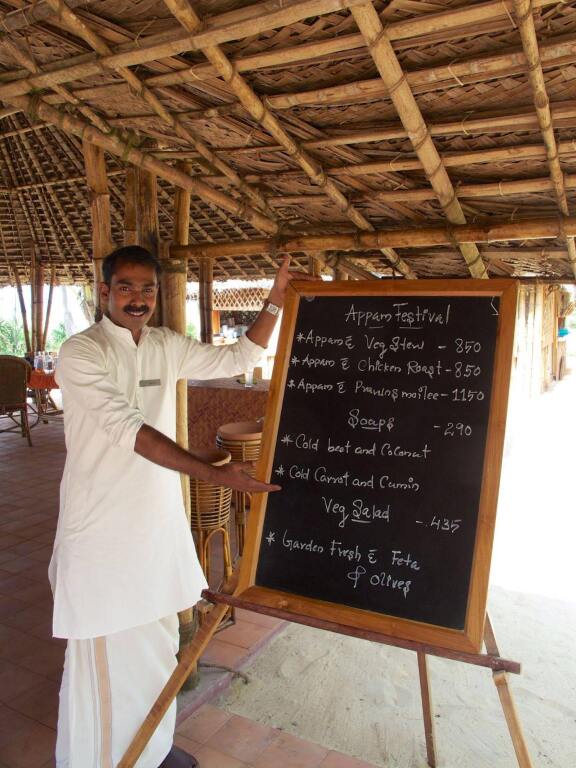 Appam Festival
* Appam & Veg Stew - 850
* Appam & Chicken Roast - 850
* Appam & Prawns moilee - 1150
Soaps - 290
* Cold beet and Coconut
* Cold Carrot and Cumin
Veg Salad - 435
* Garden Fresh & Feta
& Olives